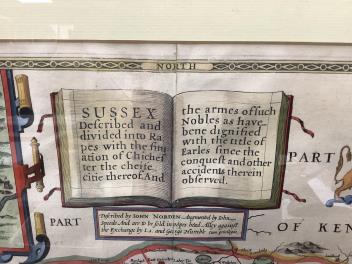 NORTH
SUSSEX
Described and
divided into Ra
pes with the situ
ation of Chichest
ter the cheife
citie thereof. And
the armes of such
Nobles as have
bene dignified
with the title of
Earles since the
conquest and other
accidents therein
observed.
PART
PART
OF KEN
Described by JOHN NORDEN. Augmented by John
Speede. And are to be sold in popes head Alley against
the Exchange by I.S. and George Humble